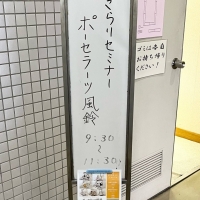 きらりセミナー
ポーセラーツ風鈴
9:30
～
11:30
ゴミは各自
お持ち帰り
ください!